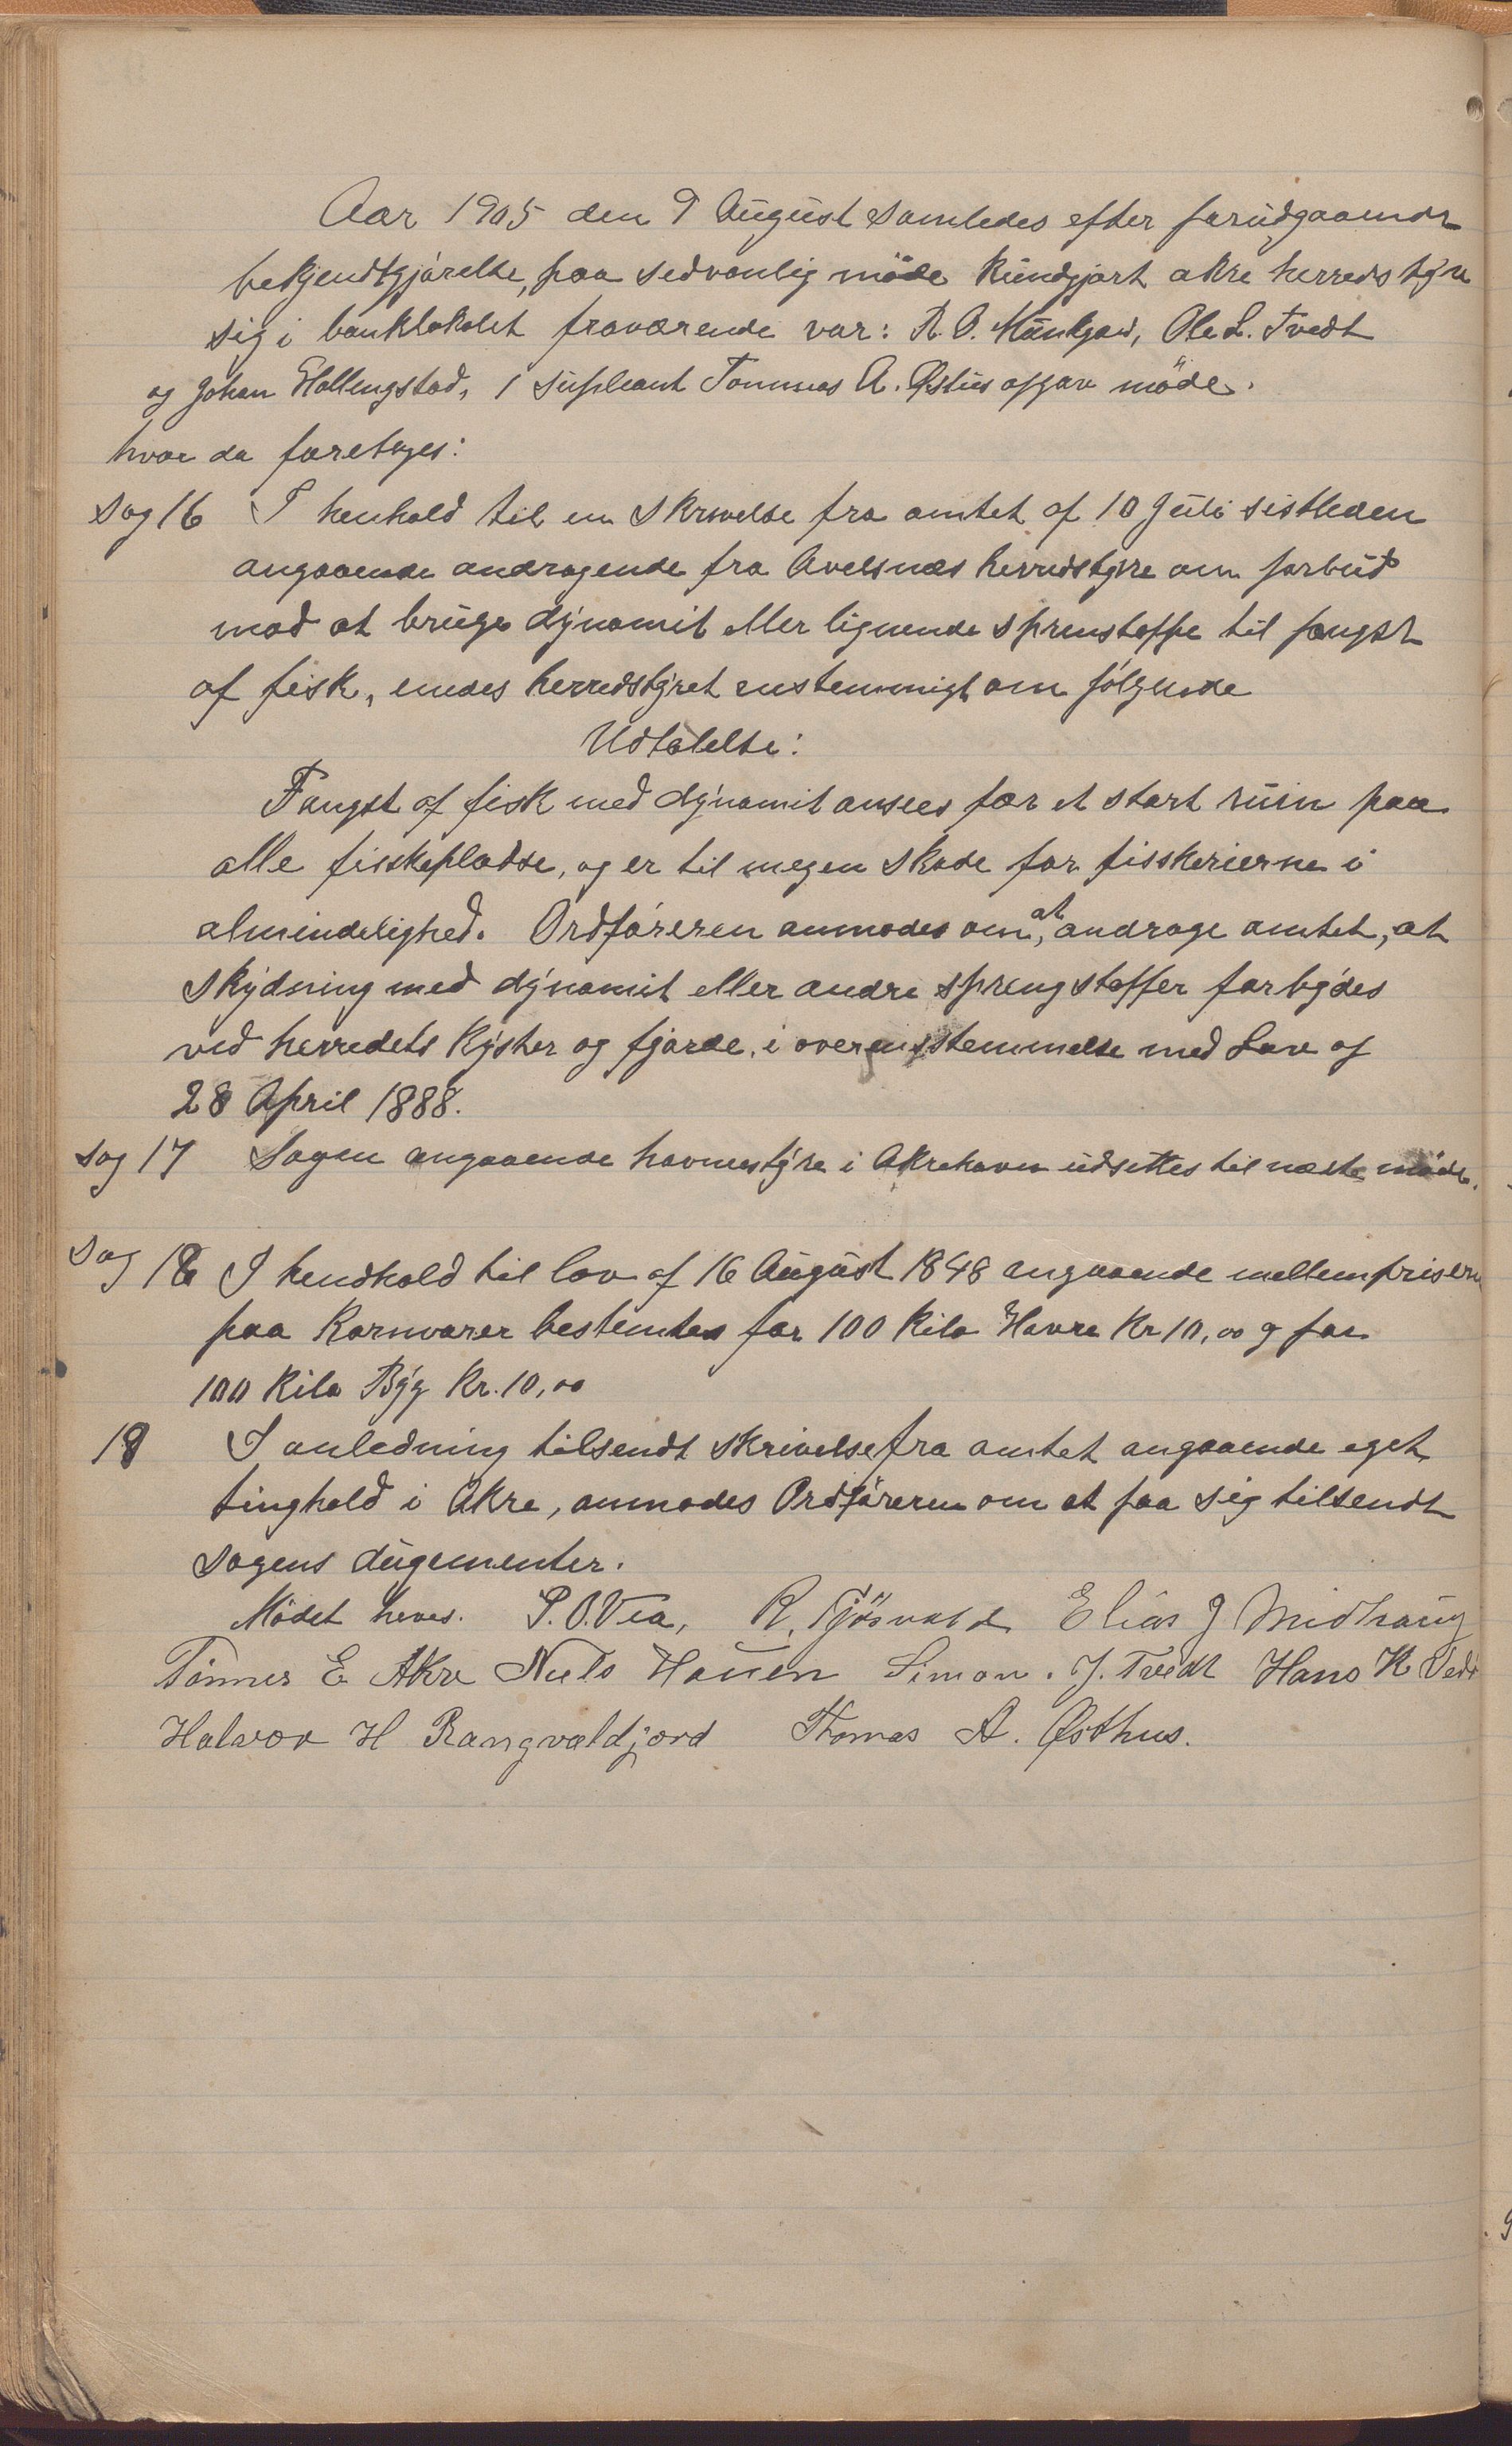 Aar 1905 den 9 August samledes efter forudgaaende
bekjendtgjørelse, paa sedvanlig møde kundgjort akre herredstyre
sig i banklokalet fraværende var: R. O. Munkjord, Ole L. Tvedt
og Johan Hallengstad, 1 supleant Tommas A. Østus afgav møde.
hvor da foretages:
Sag 16 I henhold til en Skrivelse fra amtet af 10 Juli sistleden
angaaende andragende fra Avelsnæs herredstyre om forbud
mod at bruge dynamit eller lignende sprenstoffe til fangst
af fisk, enedes herredstyret enstemmigt om følgende
Udtalelse:
Fangst af fisk med dynamit ansees for et stort ruin paa
alle fiskepladse, og er til megen Skade for fisskerierne i
almindelighed. Ordføreren anmodes om, at andrage amtet, at
Skydning med dynamit eller andre sprengstoffer forbydes
ved herredets kyster og fjorde, i overensstemmelse med Lov af
28 April 1888.
Sag 17 Sagen angaaende havnestyre i Akrehavn udsettes til næste møde.
Sag 18 I hendhold til lov af 16 August 1848 angaaende mellemprisen
paa Kornvarer bestemtes for 100 Kilo Havre Kr 10,00 og for
100 Kilo Byg Kr. 10,00
18 I anledning tilsendt skrivelse fra amtet angaaende eget
tinghold i Akre, anmodes Ordføreren om at faa sig tilsendt
sagens dugementer.
Mødet heves. P. O. Vea, R. Tjøsvold Elias J Midhaug
Tønnes E Akre Niels Hauen Simon. J. Tvedt Hans K Vedø
Halvor H Rangvaldjord Thomas A. Østhus.